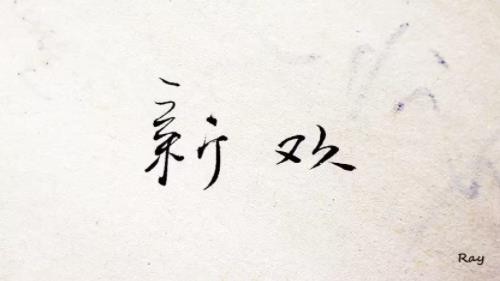 新欢
Ray